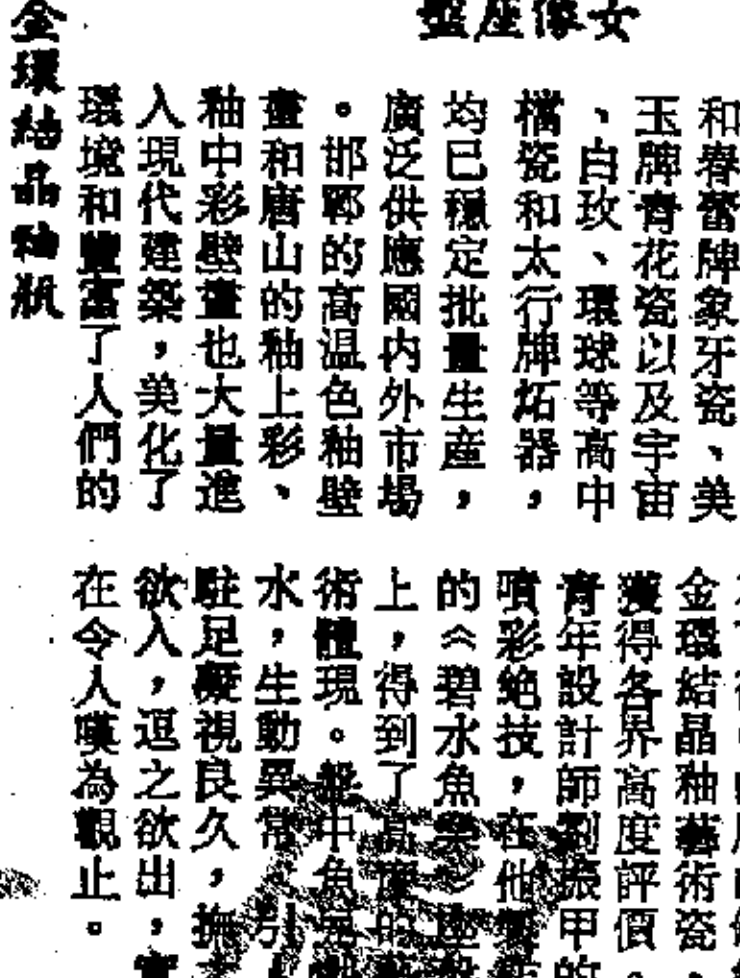 女像座盤
和春蕾牌象牙瓷、美
玉牌青花瓷以及宇宙
、白玫、環球等高中
檔瓷和太行牌炻器，
均已穩定批量生産，
廣泛供應國内外市場
。邯鄲的高温色釉壁
畫和唐山的釉上彩、
釉中彩壁畫也大量進
入現代建築，美化了
環境和豐富了人們的
金環結晶釉藝術瓷，
獲得各界高度評價。
青年設計師劉振甲的
噴彩絶技，在他
的《碧水魚樂》
上，得到了高度的
術體現。盤中魚
水，生動異常，引
駐足凝視良久，撫
欲入，逗之欲出，實
在令人嘆為觀止。
金環結晶釉瓶